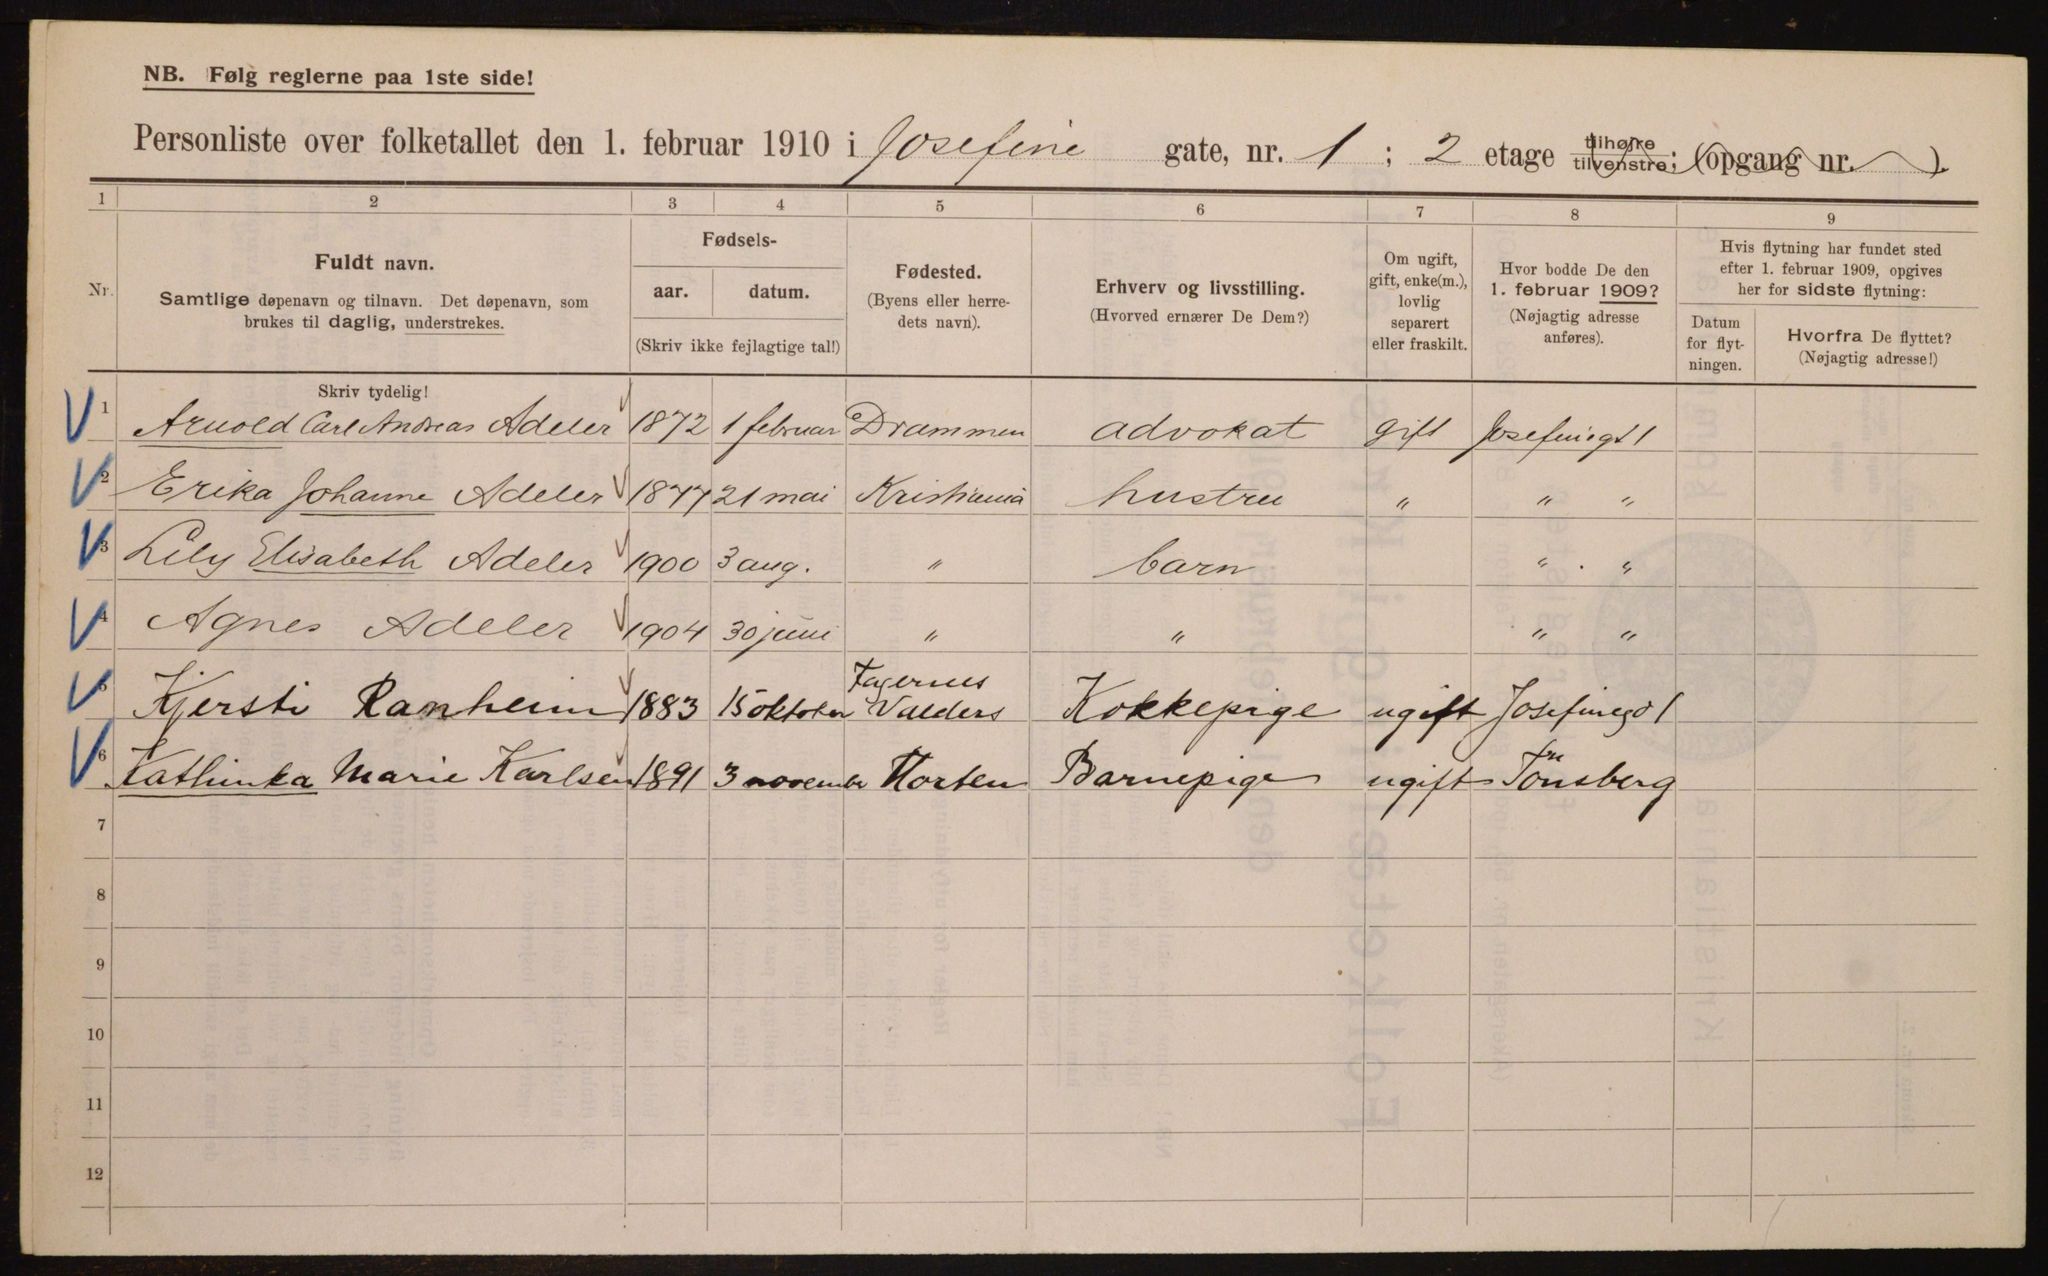 NB. Følg reglerne paa 1ste side!
Personliste over folketallet den 1. februar 1910 i Josefine gate, nr. 1 ; 2 etage tilhøire tilvenstre; (opgang nr. ).
1 2 3 4 5 6 7 8 9
Nr.
Fuldt navn.
Samtlige døpenavn og tilnavn. Det døpenavn, som
brukes til daglig, understrekes.
Skriv tydelig!
Fødsels-
aar. datum.
(Skriv ikke fejlagtige tal!)
Fødested.
(Byens eller herre-
dets navn).
Erhverv og livsstilling.
(Hvorved ernærer De Dem?)
Om ugift,
gift, enke(m.),
lovlig
separert
eller fraskilt.
Hvor bodde De den
1. februar 1909?
(Nøjagtig adresse
anføres).
Hvis flytning har fundet sted
efter 1. februar 1909, opgives
her for sidste flytning:
Datum
for flyt-
ningen.
Hvorfra De flyttet?
(Nøjagtig adresse!)
1 Arnold Carl Andreas Adeler 1872 1 februar Drammen advokat gift Josefinegt 1
2 Erika Johanne Adeler 1877 21 mai Kristiania hustru " " "
3 Lily Elisabeth Adeler 1900 3 aug. " barn " "
4 Agnes Adeler 1904 30 juni " " " "
5 Kjersti Ranheim 1883 15 oktober Fagernes Valders Kokkepige ugift Josefinegd 1
6 Kathinka Marie Karlsen 1891 3 november Horten Barnepige ugift Tönsberg
7
8
9
10
11
12